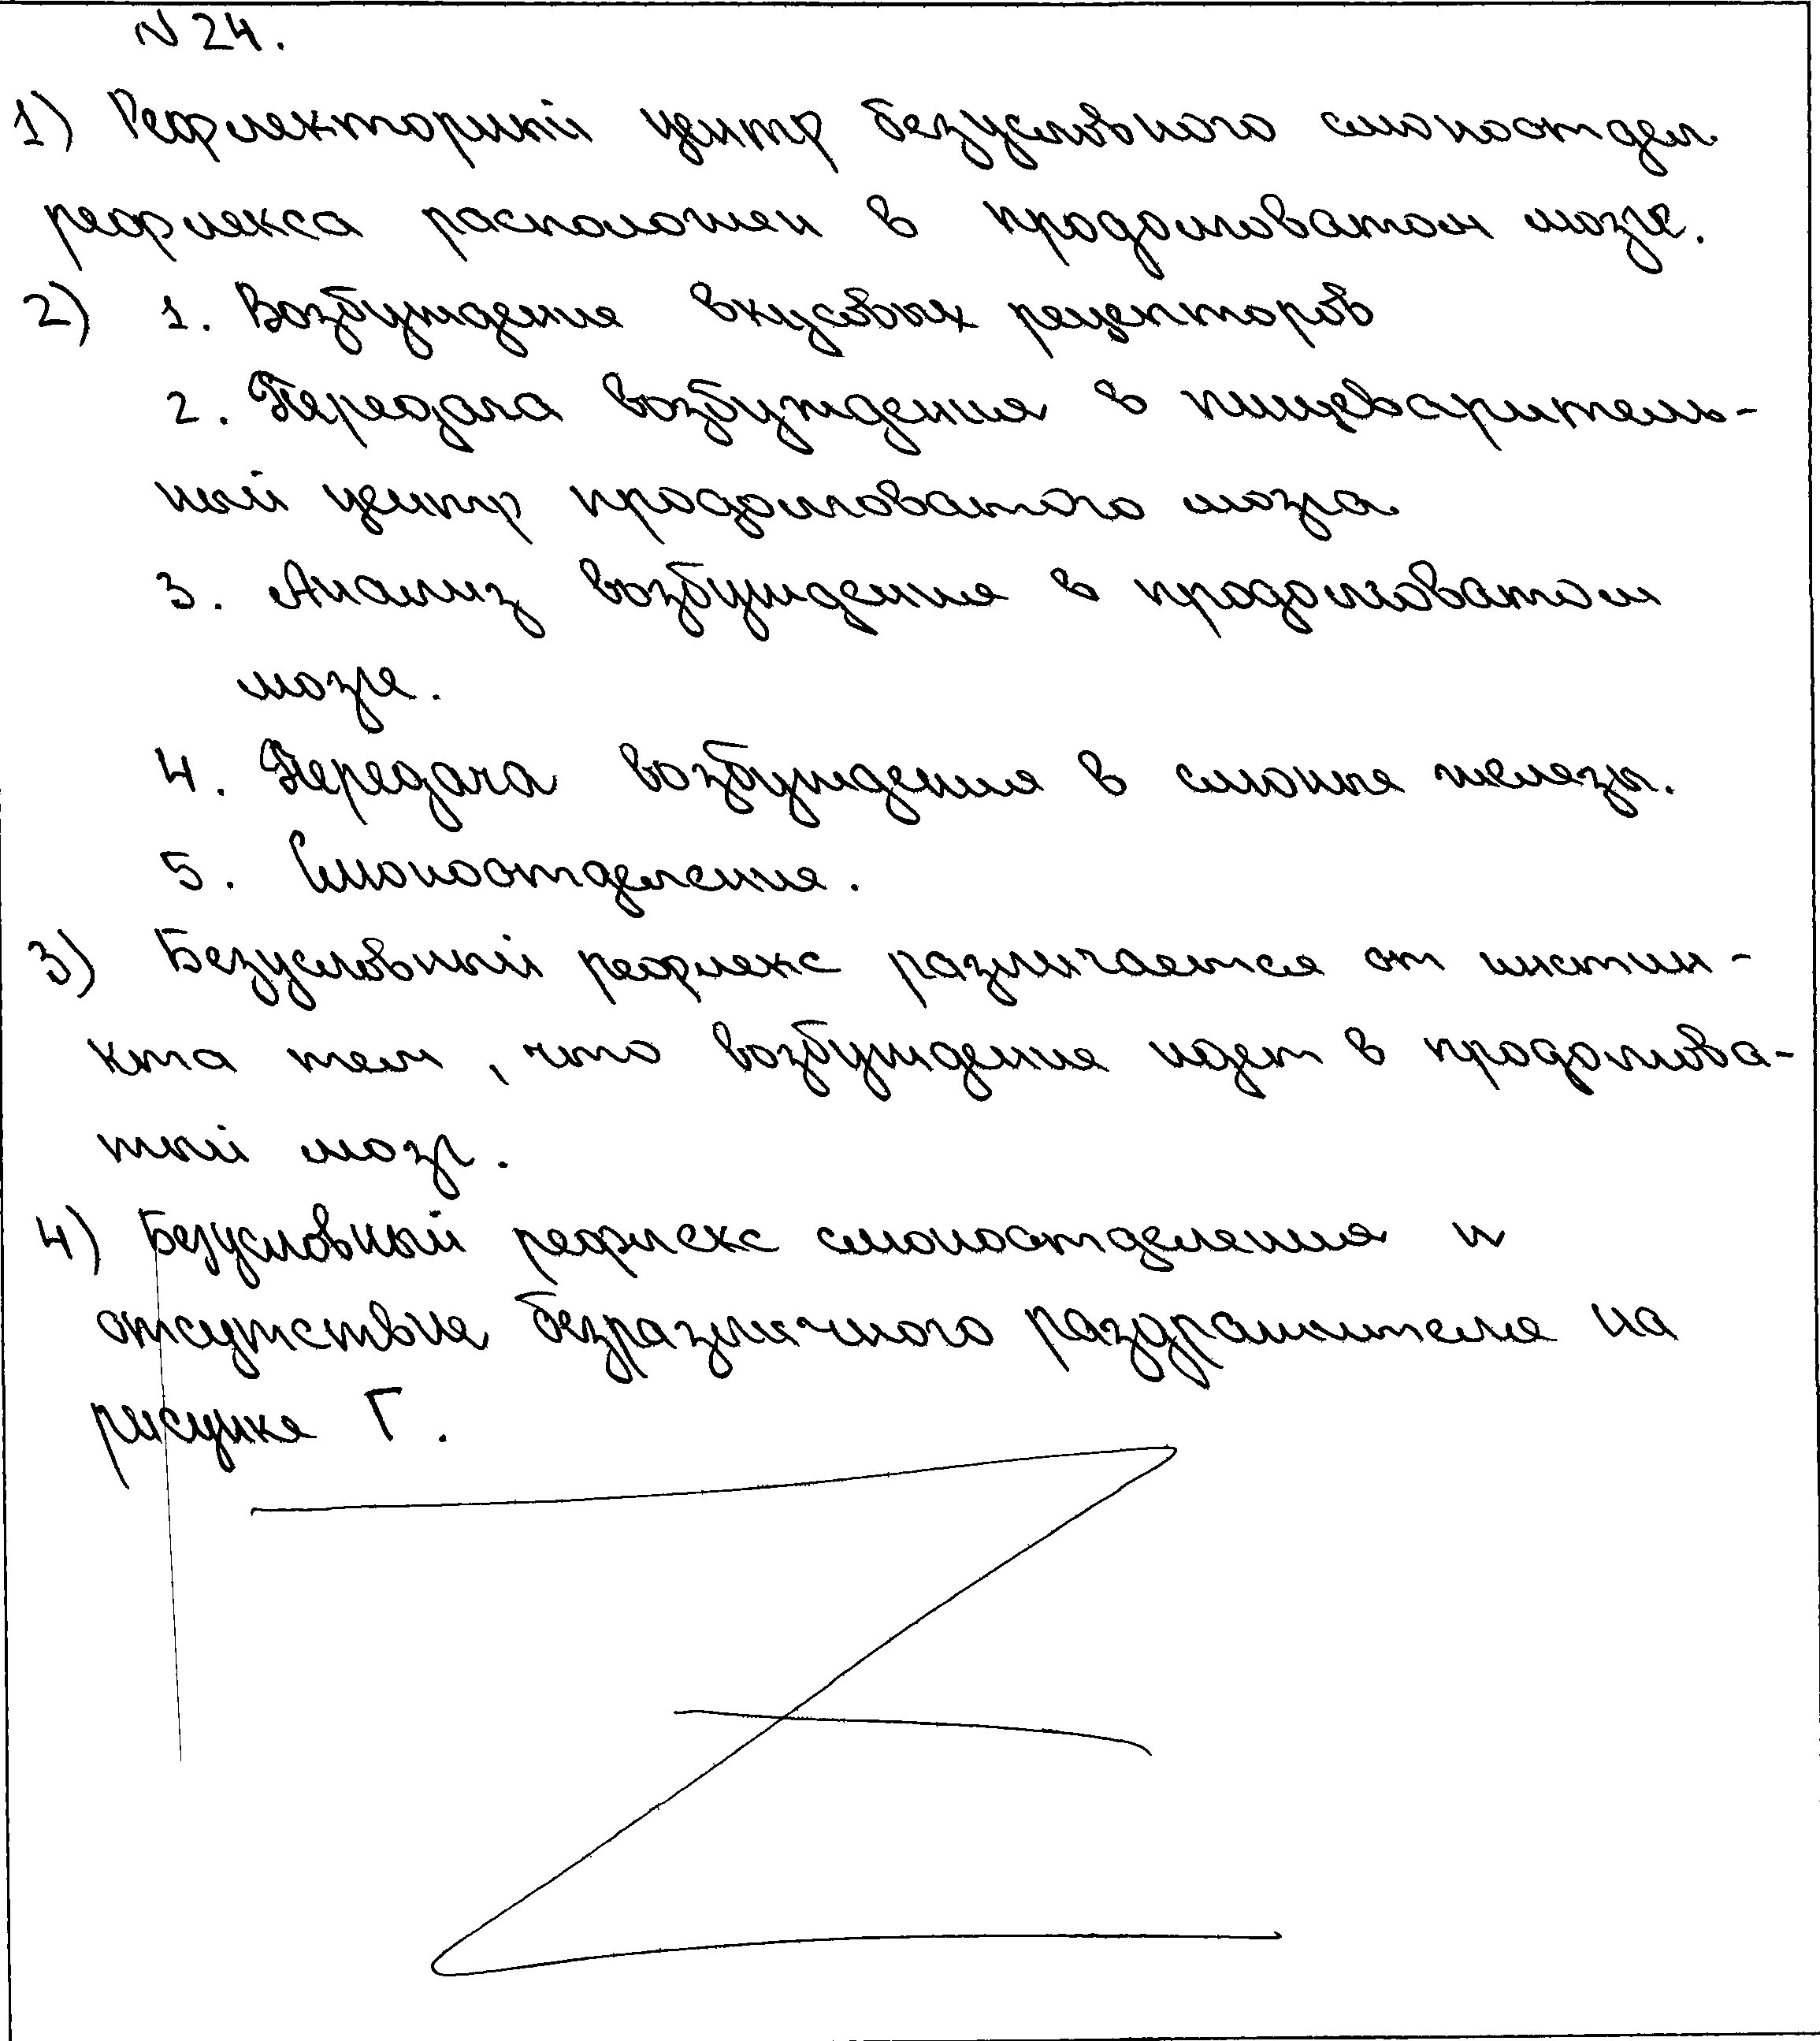 N 24.
1) Рефлекторный центр безусловного слюноотдел.
рефлекса расположен в продолговатом мозге.
2) 1. Возбуждение вкусовых рецепторов
2. Передача возбуждения в пищеваритель-
ный центр продолговатого мозга
3. Анализ возбуждения в продолговатом
мозге.
4. Передача возбуждения в слюные железы.
5. Слюноотделение.
3) Безусловный рефлекс различается от инстин-
кта тем, что возбуждение идет в продолгова-
тый мозг.
4) Безусловный рефлекс слюноотделения и
отсутствие безразличного раздражителя на
рисунке Г.